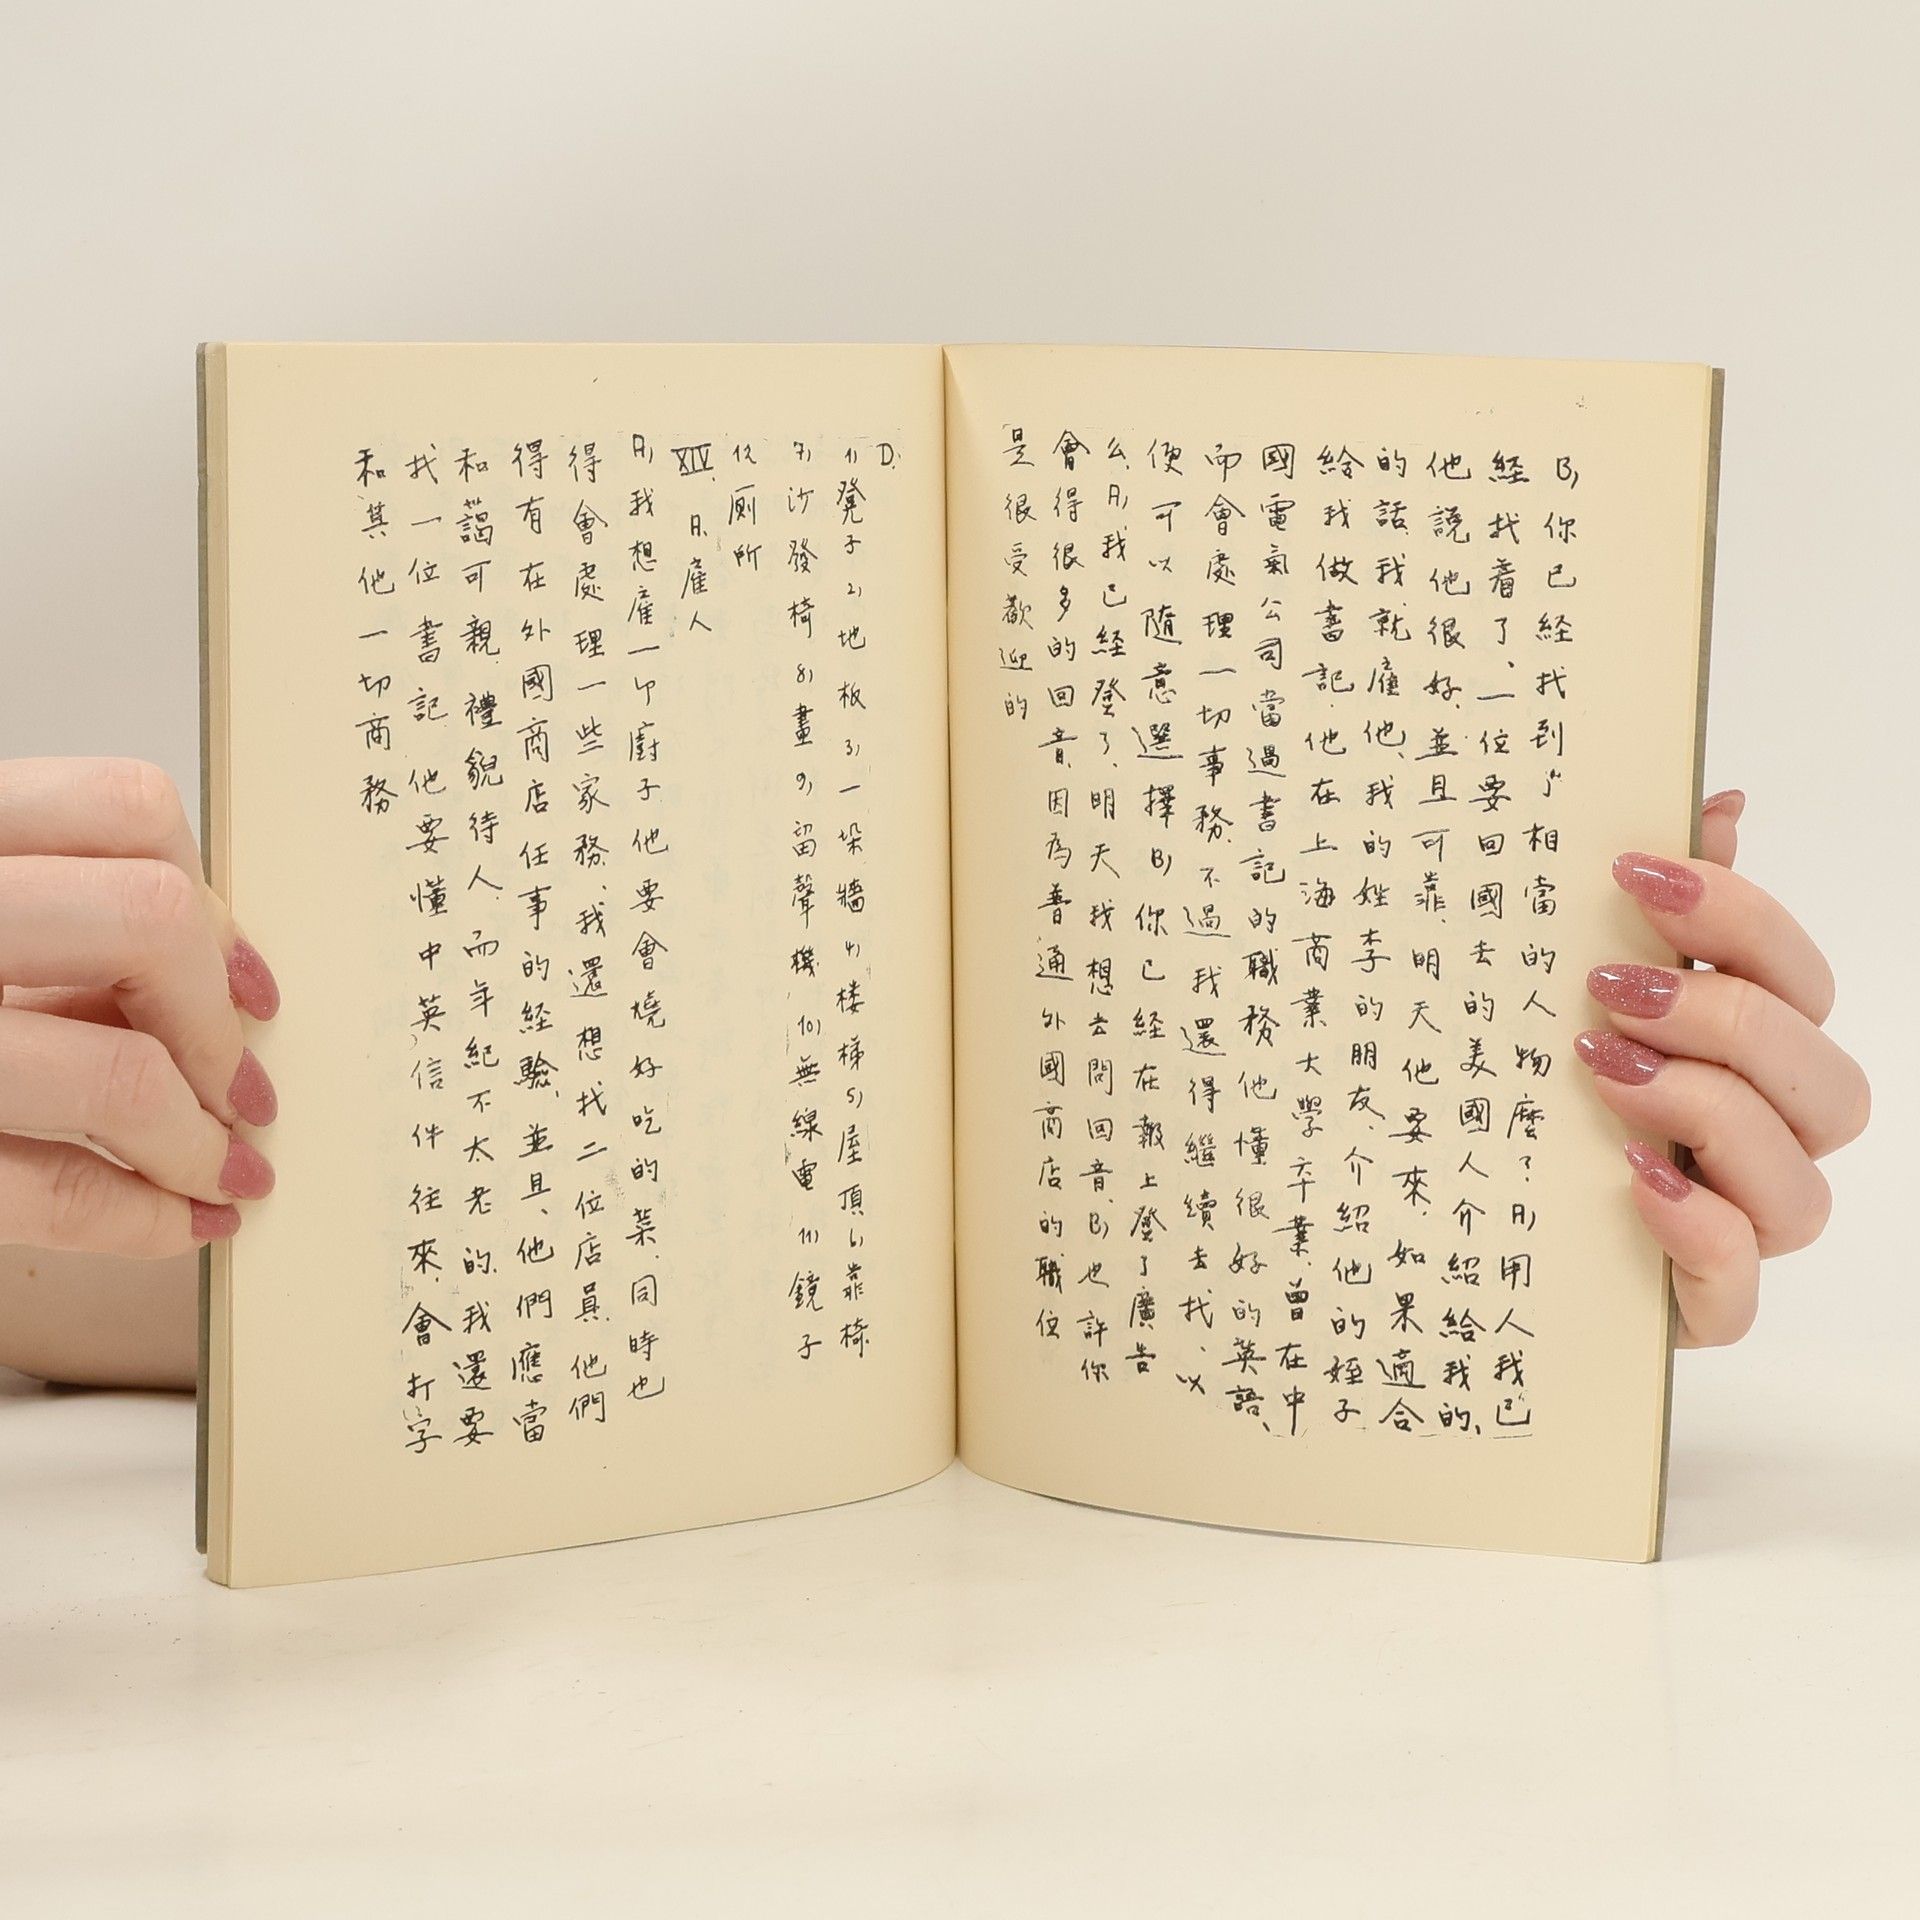 D.
1) 凳子 2) 地板 3) 一垛牆 4) 楼梯 5) 屋頂 6) 靠椅
7) 沙發椅 8) 畫 9) 留聲機 10) 無線電 11) 鏡子
12) 厠所
XIV. A. 雇人
A) 我想雇一个廚子他要會燒好吃的菜.同時也
得會處理一些家務、我還想找二位店員.他們
得有在外國商店任事的経驗、並且、他們應當
和藹可親.禮貌待人.而年紀不太老的.我還要
找一位書記.他要懂中英信件往來.會打字
和其他一切商務
B) 你已経找到了相當的人物麽了.A) 用人我已
経找着了、一位要回國去的美國人介紹給我的、
他説他很好.並且可靠.明天他要來.如果適合
的話.我就雇他、我的姓李的朋友、介紹他的姪子
給我做書記.他在上海商業大學卒業.曾在中
國電氣公司當過書記的職務他懂很好的英語、
而會處理一切事務.不過我還得継續去找、以
便可以隨意選擇 B) 你已経在報上登了廣告
么.A) 我已経登了、明天我想去問回音.B) 也許你
會得很多的回音.因為普通外國商店的職位
是很受歡迎的